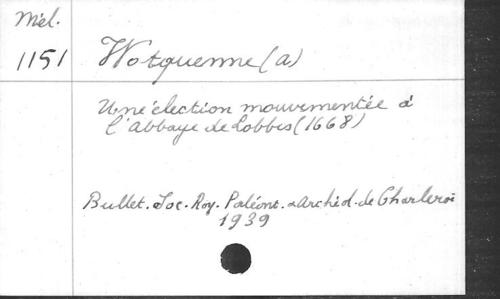 Mél.
1151 Wotquenne (a)
Une élection mouvementée à
l'Abbaye de Lobbes (1668)
Bullet. Soc. Roy. Paléont. & Archéol. de Charleroi
1939